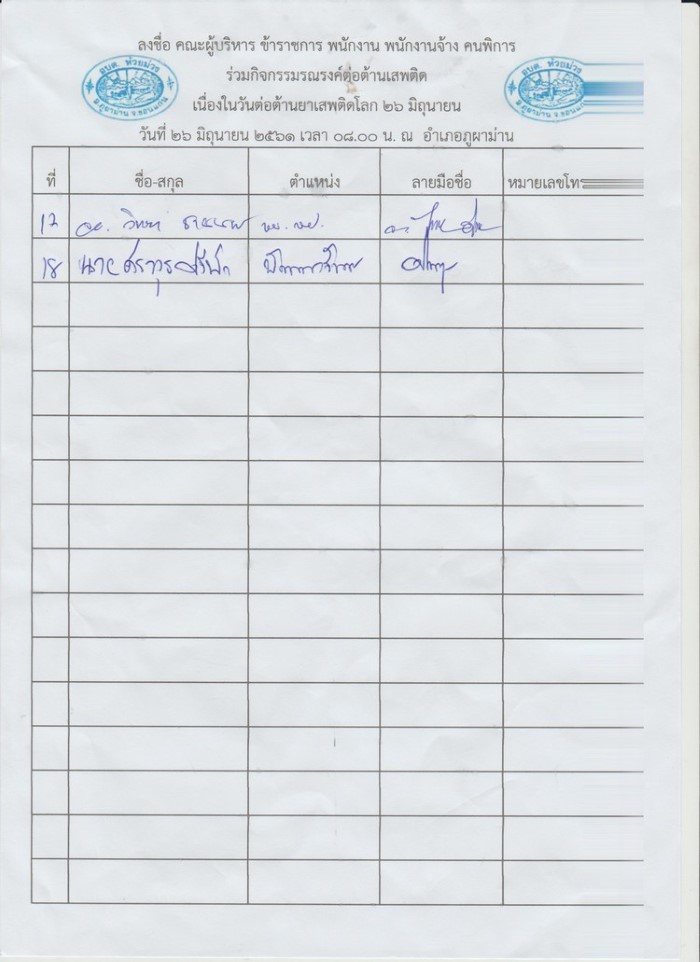 ลงชื่อ คณะผู้บริหาร ข้าราชการ พนักงาน พนักงานจ้าง คนพิการ
ร่วมกิจกรรมรณรงค์ต่อต้านเสพติด
เนื่องในวันต่อต้านยาเสพติดโลก ๒๖ มิถุนายน
วันที่ ๒๖ มิถุนายน ๒๕๖๑ เวลา ๐๘.๐๐ น. ณ อำเภอภูผาม่าน
อบต. ห้วยม่วง
อ.ภูผาม่าน จ.ขอนแก่น
อบต. ห้วยม่วง
อ.ภูผาม่าน จ.ขอนแก่น
ที่ ชื่อ-สกุล ตำแหน่ง ลายมือชื่อ หมายเลขโท
17
18 นาย